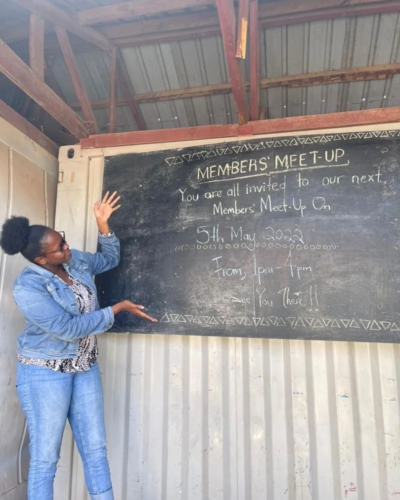 MEMBERS' MEET-UP
You are all invited to our next
Members' Meet-Up On
5th May 2022
From, 1pm - 4pm
See You There!!